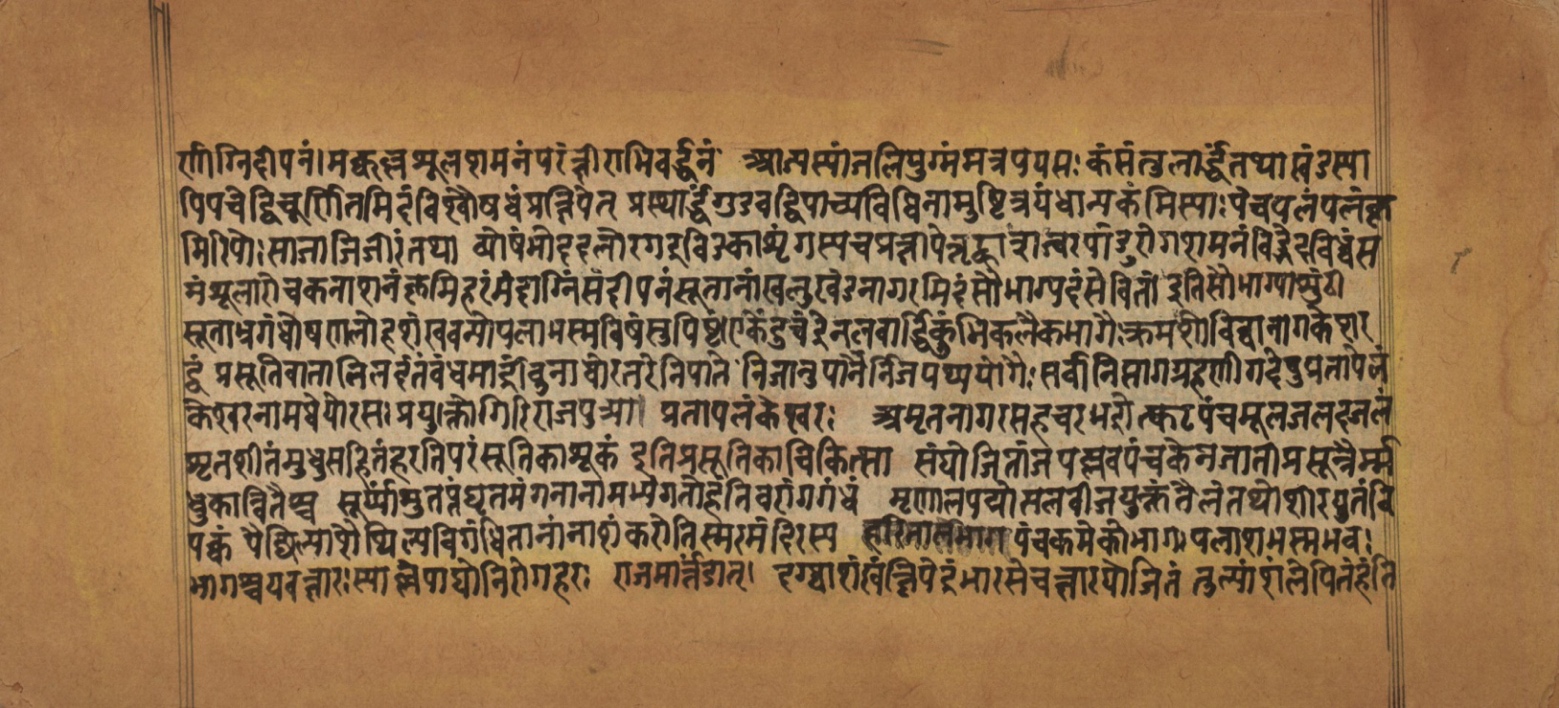 र्णाग्निदीपनं। मक्कल्लशूलशमनंपरंक्षीराभिवर्द्धनं आज्यस्यांजलियुग्मंमत्रपयसः कंसंतुलार्द्धंतथाखंडस्या
पिपचेद्विचूर्णितमिदंविश्वौषधंप्रक्षिपेत् प्रस्थार्द्धंगुडवद्विपाच्यविधिनामुष्टित्रयंधान्यकं मिस्याः पंचपलंपलंकृ
मिरिपोः साजाजिजीरंतथा व्योषंभोददलोरगेंद्रविडकाशृंगस्यचप्रक्षापेत्तृट्कासज्वरपांडुरोगशमनंविड्भेदविध्वंस
नंशूलारोचकनाशनंकृमिहरंमंदाग्निसंदीपनंसूतानांखलुखंडनागरमिदंसौभाग्यदंसेवितां इतिसौभाग्यशुंठी
सूताभ्रगंधोषणलोहशंखवन्योपलाभस्मविषंसुपिष्टं एकेंदुचंद्रेनलवार्द्धिकुंभिकलैकभागैः क्रमशोविद्वानागकेशर
ट्टं प्रसूतिवातानिलदंतबंधमार्द्रांबुनाघोरतरेनिपाते निजानुपानैर्निजपथ्ययोगैः सर्वान्निसागग्रहणीगदेषुप्रतापलं
केश्वरनामधेयोरसः प्रयुक्तोगिरिराजपुत्र्या। प्रतापलंकेश्वरः अमृतनागरसहचरभद्रोत्कटपंचमूलजलदजलं
शृतशीतंमुधुसहितंहरतिपरंसूतिकाशूकं इतिप्रसूतिकाचिकित्सा संयोजितांजपल्लवपंचकेनजातीप्रसूनैर्म्म
धुकान्वितैश्च सूर्यांशुतप्तंघृतमंगनानामभ्यंगतोहंतिवरांगगंधं मृणालपद्योत्पलबीजयुक्तंतैलंतथोशीरयुतंवि
पक्वं पैछिल्यशैथिल्यविगंधितानांनाशंकरोतिस्मरमंदिरस्य हरितालभाग पंचकमेकोभागः पलाशभस्मभवः
भागश्चयवक्षारः स्याल्लेपाद्योनिरोगहरः राजमार्त्तंडात्। दग्ध्वाशंखंक्षिपेद्रंभारसेचक्षारयोजितं तुल्यांशंलेपितंहंति